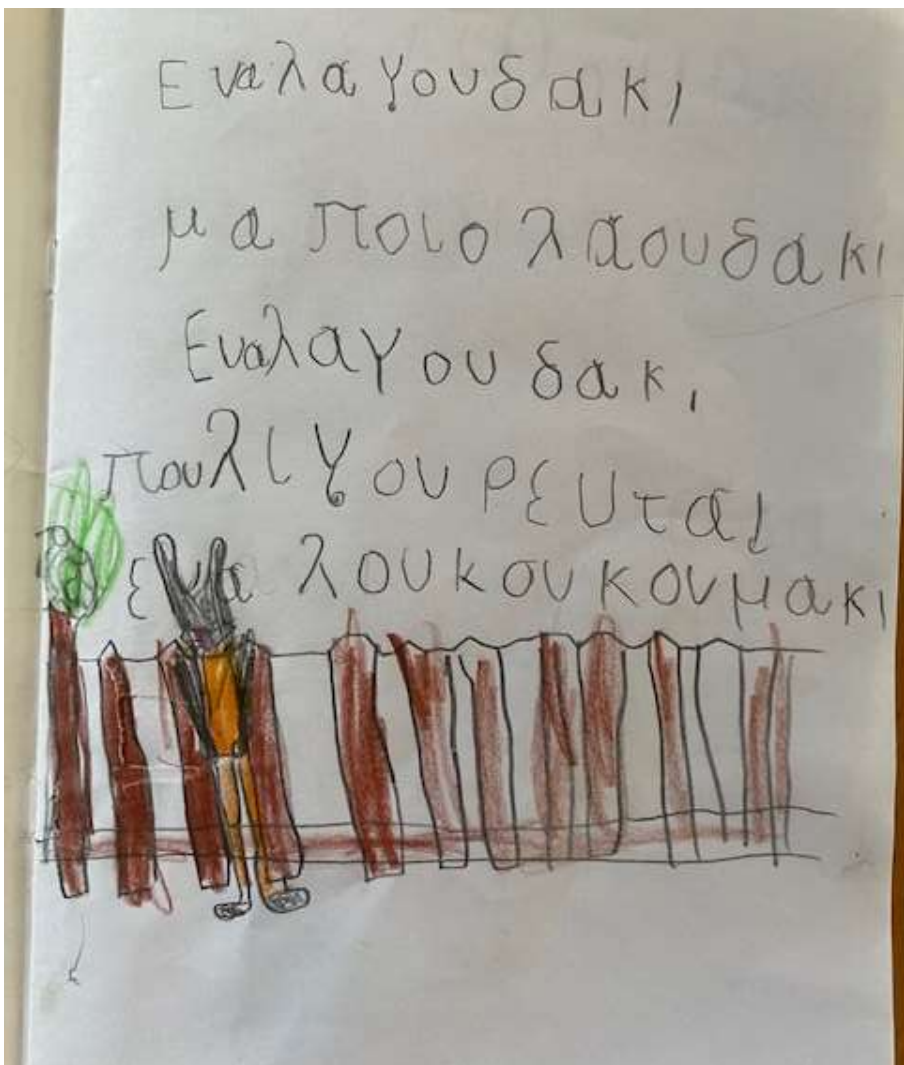 Εναλαγουδακι
μα ποιο λαουδακι
Εναλαγουδακι
πουλιγουρευται
ενα λουκουκουμακι